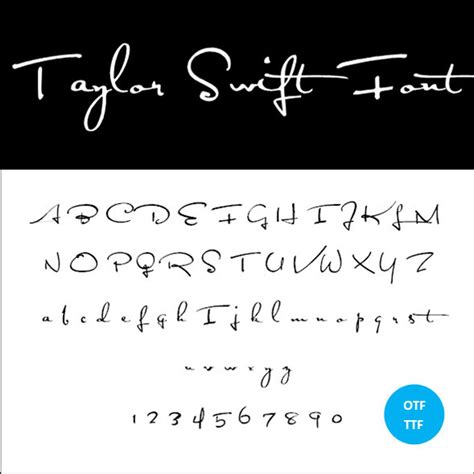 Taylor Swift Font
A B C D E F G H I J K L M
N O P Q R S T U V W X Y Z
a b c d e f g h I j k l m n o p q r s t
u v w x y z
1 2 3 4 5 6 7 8 9 0
OTF
TTF